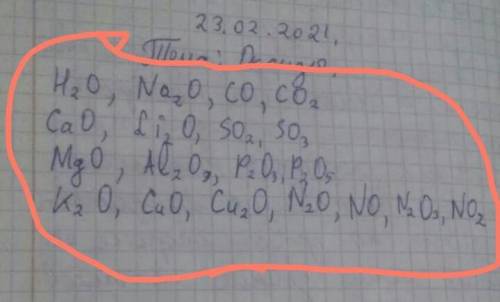 23.02.2021.
Тема:
H₂O, Na₂O, CO, CO₂
CaO, Li₂O, SO₂, SO₃
MgO, Al₂O₃, P₂O₃, P₂O₅
K₂O, CuO, Cu₂O, N₂O, NO, N₂O₃, NO₂